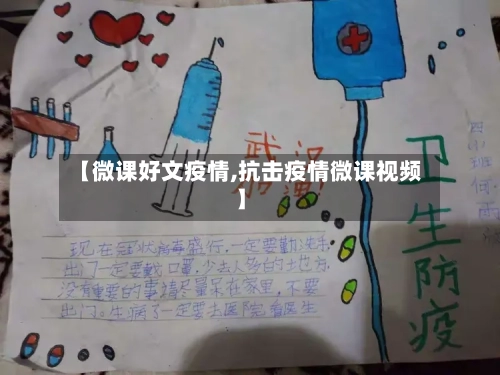 【微课好文疫情,抗击疫情微课视频
】
武汉
加油
卫生防疫
现在冠状病毒盛行.一定要勤洗手.
出门一定要戴口罩.少去人多的土也方.
没有重要的事情尽量呆在家里.不要
出门。生病了一定要去医院看医生